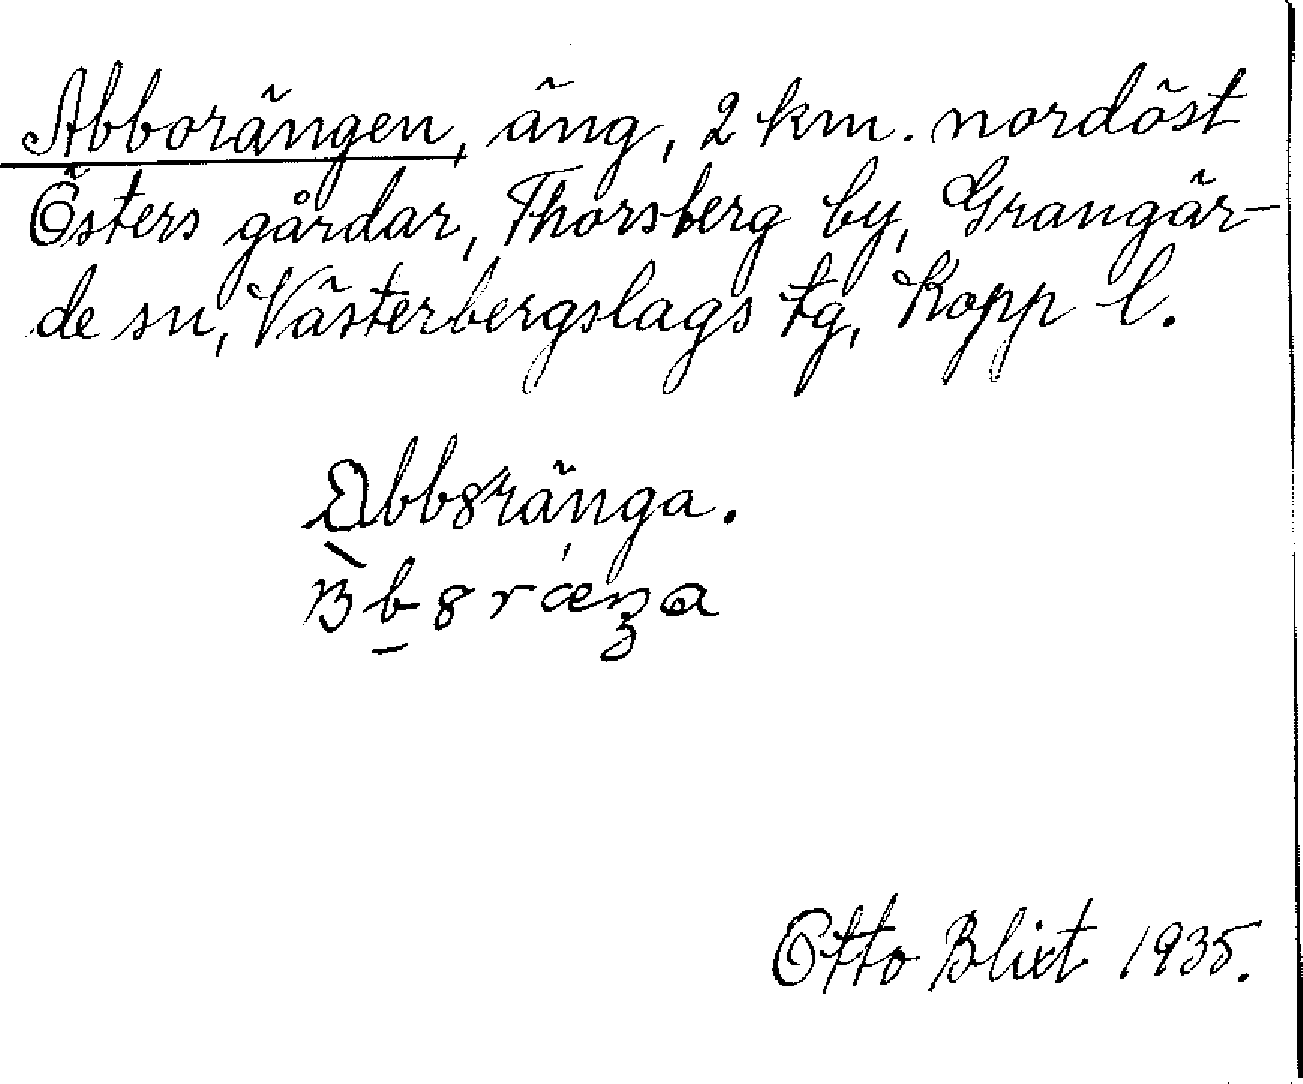 Abborängen, äng, 2 km. nordöst
Östers gårdar, Thorsberg by, Grangär-
de sn, Västerbergslags tg, Kopp l.
Abb8ränga.
Otto Blixt 1935.